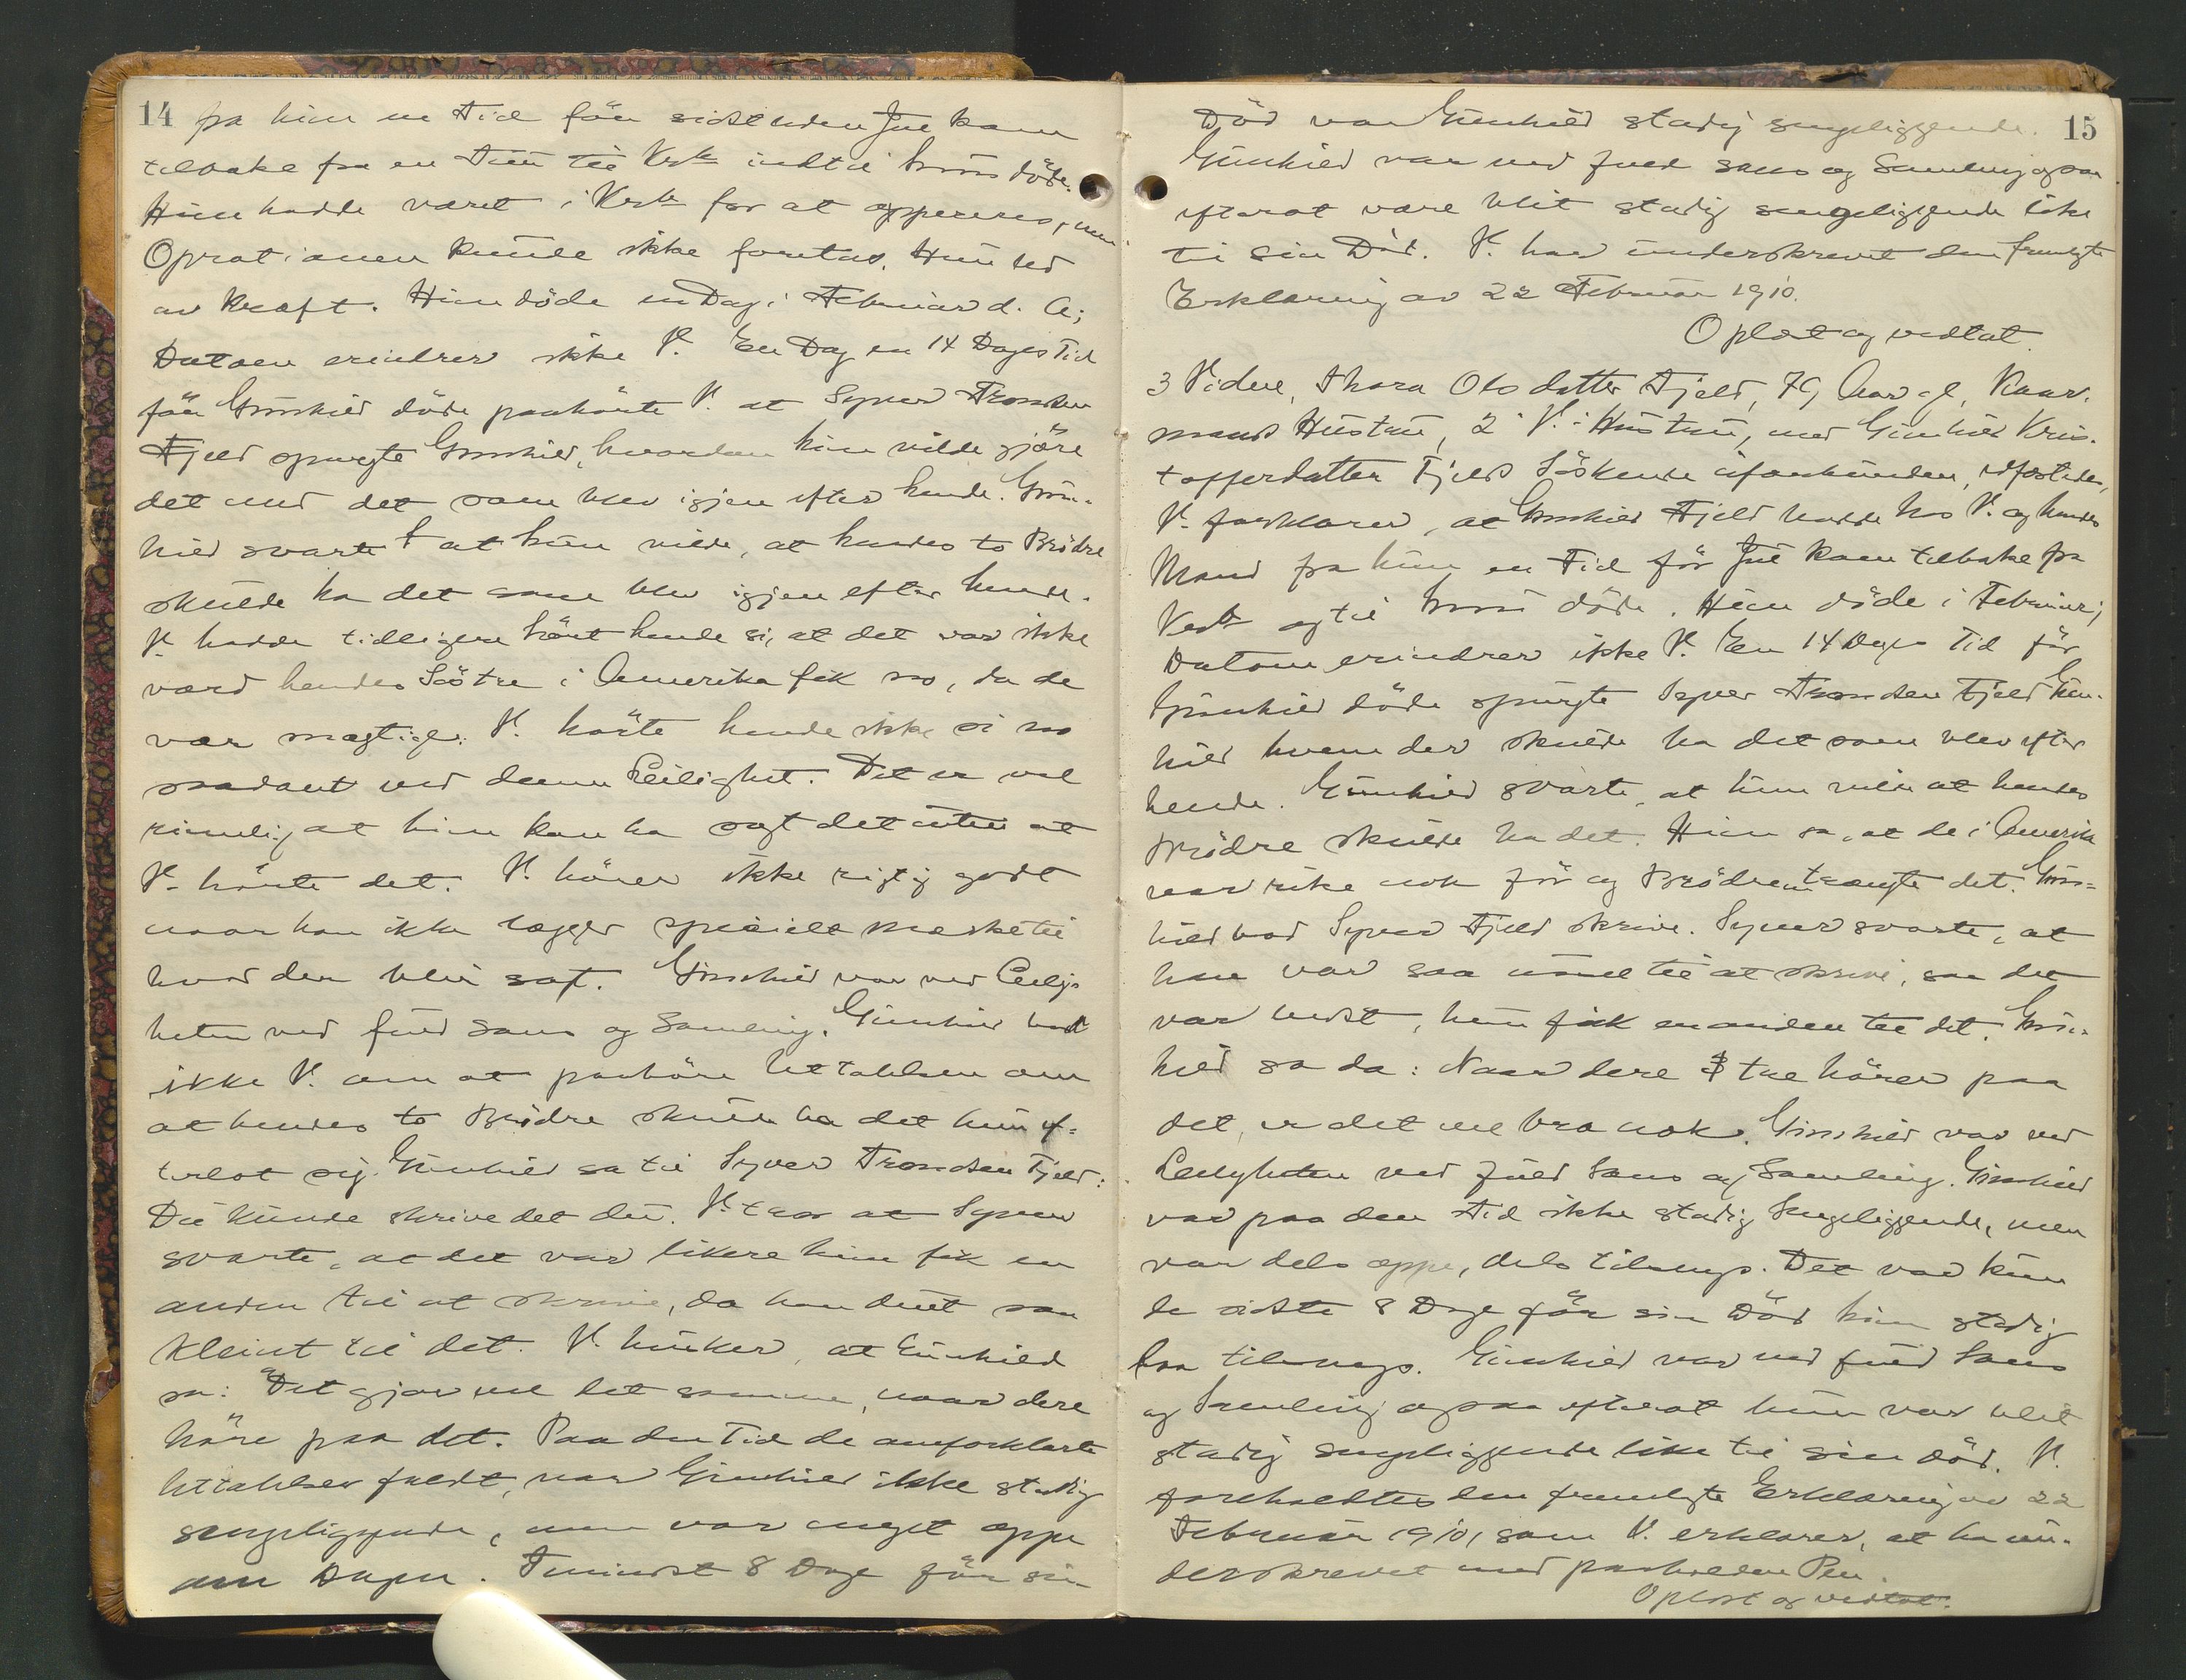 14 fra hun en Tid för sidst uden Jul kom
tilbake fra en Tur til Krtr indtil hun döde.
Hun hadde været i Krtr for at oppereres, men
Oprationen kunde ikke foretas. Hun led
av Kræft. Hun döde en Dag i Februar d. A;
Datoen erindrer ikke V. En Dag en 14 Dages Tid
för Gunhild döde paahörte V. at Syver Trondsen
Fjeld spurgte Gunhild, hvordan hun vilde gjöre
det med det som blev igjen efter hende. Gun-
hild svarte at hun vilde, at hendes to Brödre
skulde ha det som blev igjen efter hende.
V. hadde tidligere hört hende si, at det var ikke
værd hendes Söstre i Amerika fik no, da de
var mægtige. V. hörte hende ikke si no
saadant ved denne Leilighet. Det er vel
rimelig at hun kan ha sagt det uten at
V. hörte det. V. hörer ikke rigtig godt
naar han ikke lægger specielt Mærke til
hvad der blir sagt. Gunhild var ved Leilig-
heten ved fuld Sans og Samling. Gunhild bad
ikke V. om at paahöre Uttalelsen om
at hendes to Brödre skulde ha det hun ef-
terlot sig. Gunhild sa til Syver Trondsen Fjeld:
Du kunde skrive det du. V. tror at Syver
svarte, at det var likere hun fik en
anden til at skrive, da han var saa
kleint til det. V. husker, at Gunhild
sa: "Det gjør vel det samme, naar dere
höre paa det. Paa den Tid de omforklarte
Uttalelser faldt, var Gunhild ikke stadig
sengeliggende, men var meget oppe
om Dagen. Tmindst 8 Dage för sin
15
Död var Gunhild stadig sengeliggende.
Gunhild var ved fuld Sans og Samling ogsaa
efterat være blit stadig sengeliggende like
til sin Död. V. har underskrevet den fremlagte
Erklæring av 22 Februar 1910.
Oplæst og vedtat.
3 Vidne, Thora Olsdatter Fjeld, 79 Aar gl, Kaar-
mands Hustru, 2' V.'s Hustru, med Gunhild Kris-
tofferdatter Fjelds Söskende ufor­bunden, edfæstedes,
V. forklarer, at Gunhild Fjeld hadde hos V. og hendes
Mand fra hun en Tid för Jul kom tilbake fra
Krtr og til hun döde. Hun döde i Februar;
Datoen erindrer ikke V. En 14 Dages Tid för
Gunhild döde spurgte Syver Trondsen Fjeld Gun-
hild hvem der skulde ha det som blev efter
hende. Gunhild svarte, at hun vilde at hendes
Brödre skulde ha det. Hun sa, at de i Amerika
var rike nok för og Brödrene trængte det. Gun-
hild bad Syver Fjeld skrive. Syver svarte, at
han var saa usel til at skrive, saa det
var bedst, hun fik en anden til det. Gun-
hild sa da: Naar dere tre hörer paa
det, er det vel bra nok. Gunhild var ved
Leiligheten ved fuld Sans og Samling. Gunhild
var paa den Tid ikke stadig Sengeliggende, men
var dels oppe, dels tilsengs. Det var kun
de sidste 8 Dage för sin Död hun stadig
laa tilsengs. Gunhild var ved fuld Sans
og Samling ogsaa efterat hun var blit
stadig sengeliggende like til sin Död. V.
foreholdtes den fremlagte Erklæring av 22
Februar 1910, som V. erklærer, at ha un-
derskrevet med paaholden Pen.
Oplæst og vedtat.